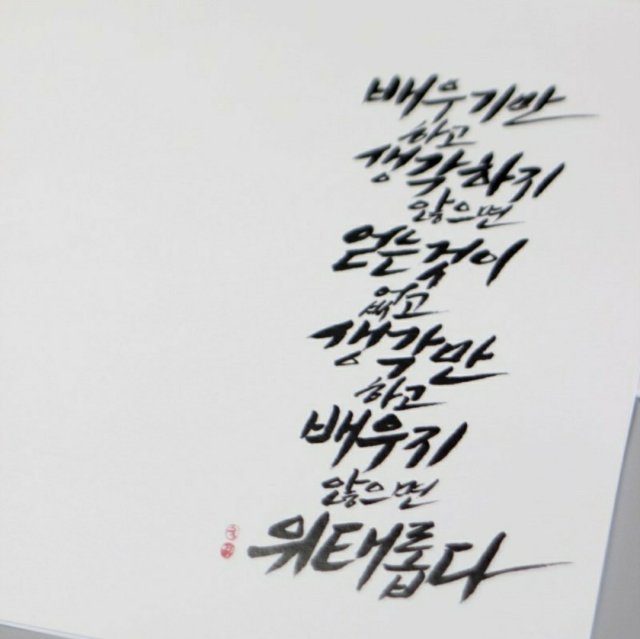 배우기만
하고
생각하지
않으면
얻는것이
없고
생각만
하고
배우지
않으면
위태롭다